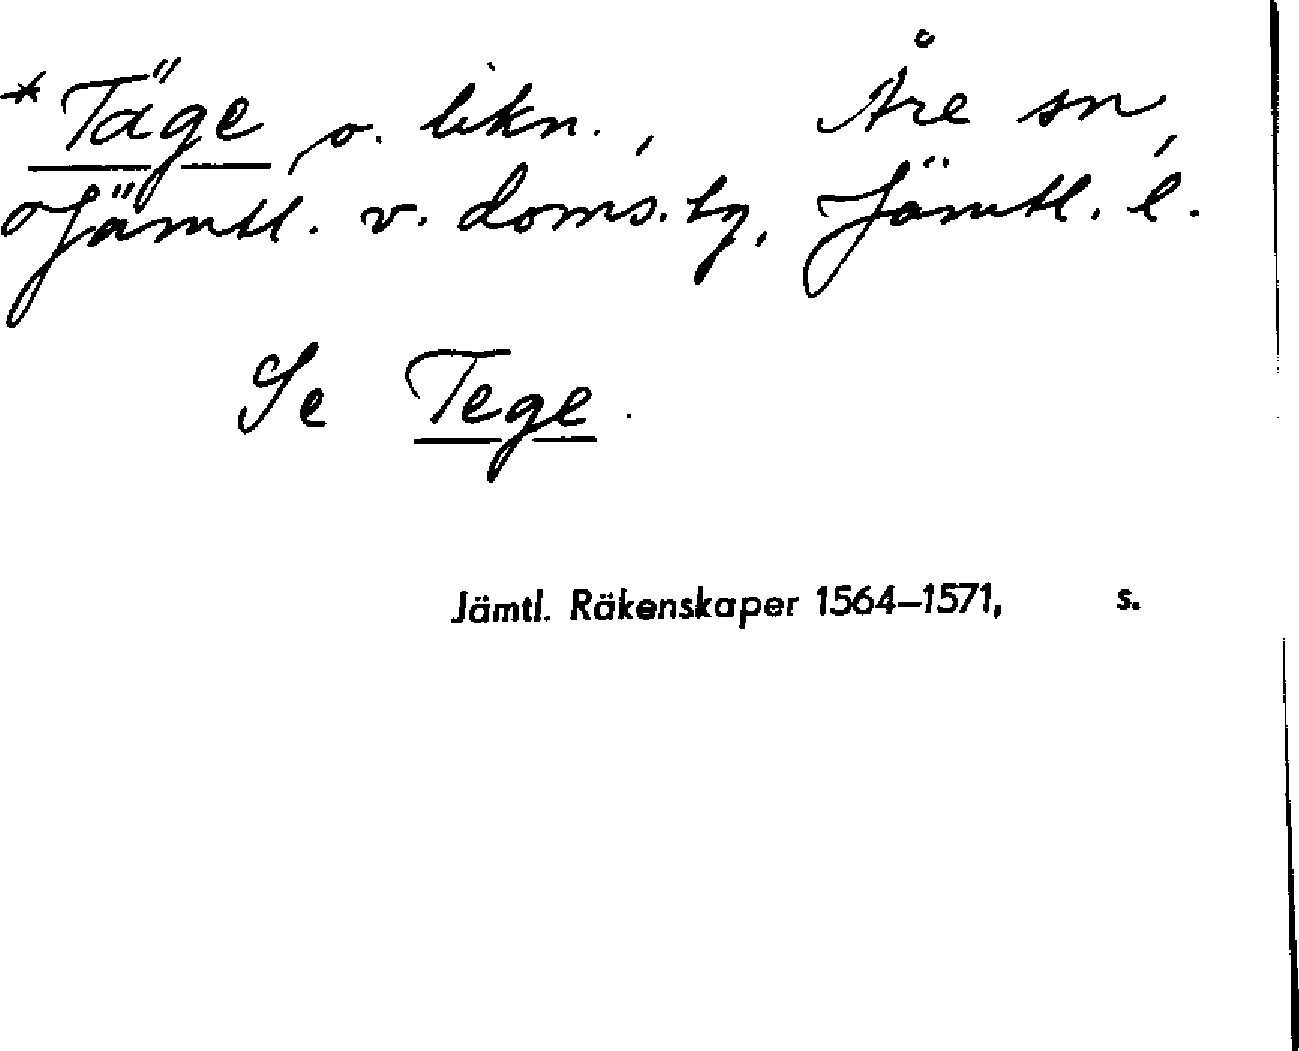 *Täge, o. likn., Åre sn,
Jämtl. v. doms.tg, Jämtl. l.
Se Tege.
Jämtl. Räkenskaper 1564–1571, s.